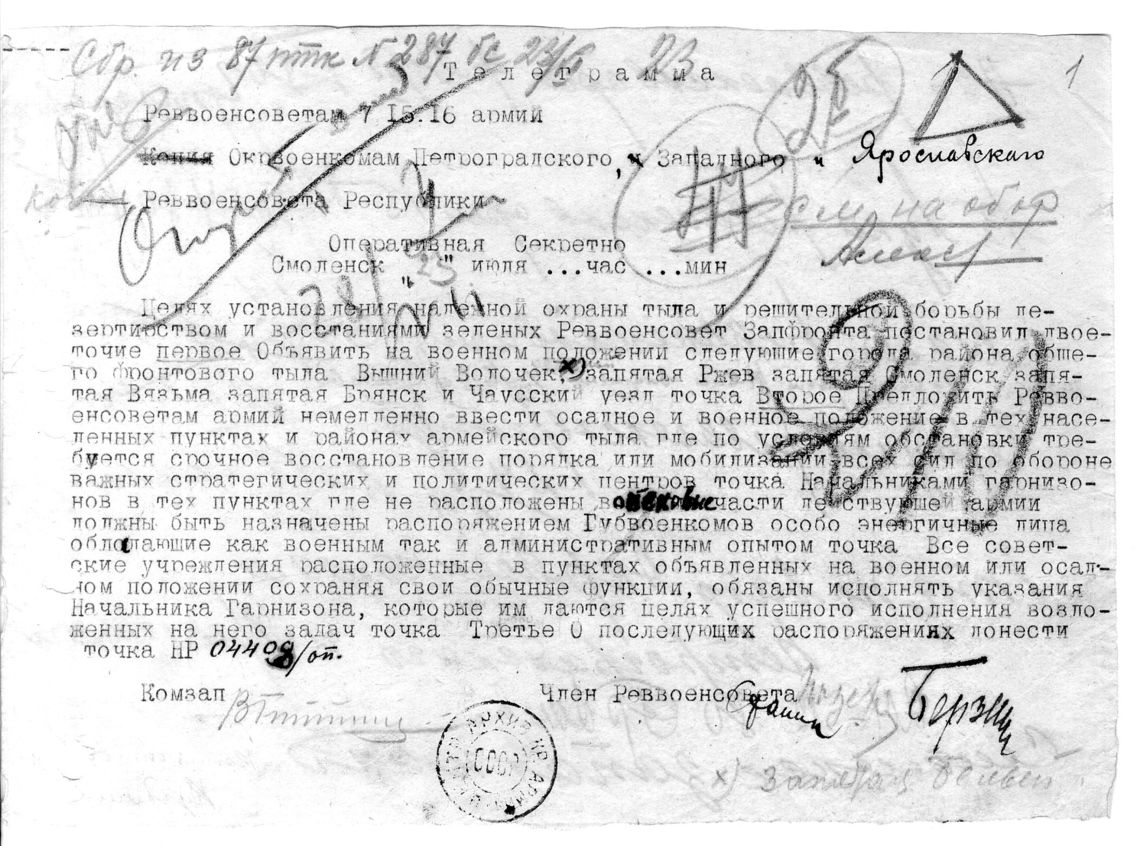 Сбр. из 87 птк № 287 бс 23/6
Телеграмма
1
Реввоенсоветам 7 15.16 армий
Копия Окрвоенкомам Петроградского, и Западного и Ярославского
Реввоенсовета Республики
см. на обор
Оперативная Секретно
Смоленск "23" июля ...час ...мин
Целях установления надежной охраны тыла и решительной борьбы де-
зертирством и восстаниями зеленых Реввоенсовет Запфронта постановил двое-
точие первое Объявить на военном положении следующие города района обще-
го фронтового тыла Вышний Волочек, х) запятая Ржев запятая Смоленск запя-
тая Вязьма запятая Брянск и Чаусский уезд точка Второе Предложить Ревво-
енсоветам армий немедленно ввести осадное и военное положение в тех насе-
ленных пунктах и районах армейского тыла где по условиям обстановки тре-
буется срочное восстановление порядка или мобилизации всех сил по обороне
важных стратегических и политических центров точка Начальниками гарнизо-
нов в тех пунктах где не расположены войсковые части действующей армии
должны быть назначены распоряжением Губвоенкомов особо энергичные лица
обладающие как военным так и административным опытом точка Все совет-
ские учреждения расположенные в пунктах объявленных на военном или осад-
ном положении сохраняя свои обычные функции, обязаны исполнять указания
Начальника Гарнизона, которые им даются целях успешного исполнения возло-
женных на него задач точка Третье О последующих распоряжениях донести
точка НР 04409/оп.
Комзап Член Реввоенсовета Берзин
АРХИВ
СССР
х) Запятая